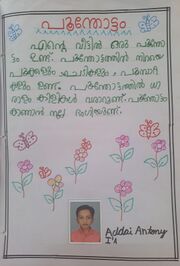 പൂന്തോട്ടം
എന്റെ വീട്ടിൽ ഒരു പൂന്തോ
ട്ടം ഉണ്ട്. പൂന്തോട്ടത്തിൽ നിറയെ
പൂക്കളും ചെടികളും പൂമ്പാറ്റ
കളും ഉണ്ട്. പൂന്തോട്ടത്തിൽ ധാ
രാളം കിളികൾ വരാറുണ്ട്. പൂന്തോട്ടം
കാണാൻ നല്ല ഭംഗിയാണ്.
Addai Antony
I A